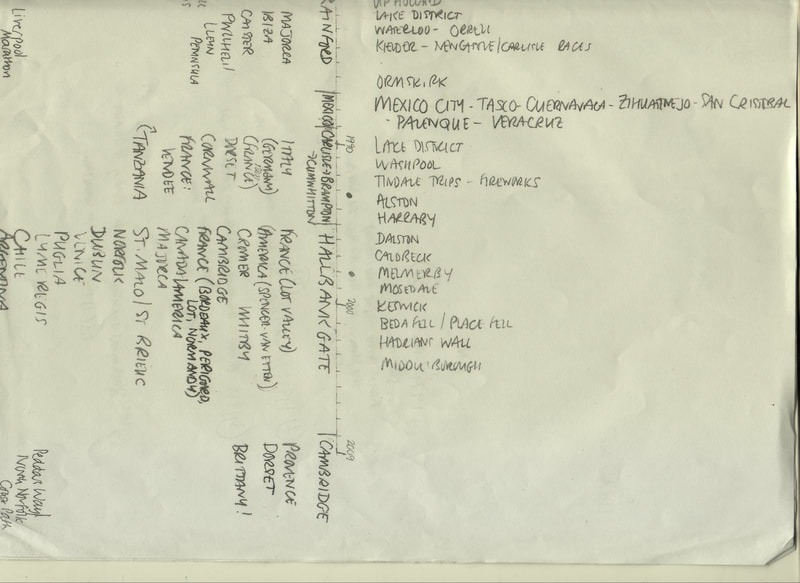 UP HOLLAND
LAKE DISTRICT
WATERLOO - ORRELL
KIELDER - NEWCASTLE/CARLISLE RACES
ORMSKIRK
MEXICO CITY - TASCO - CUERNAVACA - ZIHUATANEJO - SAN CRISTOBAL
- PALENQUE - VERACRUZ
LAKE DISTRICT
WASHPOOL
TINDALE TRIPS - FIREWORKS
ALSTON
HARRABY
DALSTON
CALDBECK
MELMERBY
MOSEDALE
KESWICK
BEDA FELL / PLACE FELL
HADRIANS WALL
MIDDLESBOROUGH
1990
2000
2009
RAINFORD
MEXICO/CARLISLE → BRAMPTON
→ CUMWHITTON
HALLBANKGATE
CAMBRIDGE
MAJORCA
IBIZA
CAISTER
PWLLHELI/
LLEYN
PENINSULA
ITALY
(GERMANY)
(FRANCE)
DORSET
CORNWALL
FRANCE:
VENDEE
(TANZANIA)
FRANCE (LOT VALLEY)
(AMERICA (SPENCER - VAN ETTEN)
CROMER WHITBY
CAMBRIDGE
FRANCE (BORDEAUX, PERIGORD,
LOT, NORMANDY)
CANADA/AMERICA
MAJORCA
ST. MALO / ST BRIEUC
NORFOLK
DUBLIN
VENICE
PUGLIA
LYME REGIS
CHILE
ARGENTINA
PROVENCE
DORSET
BRITTANY!
Liverpool
Marathon
Peddars Way/
North Norfolk
Coast Path